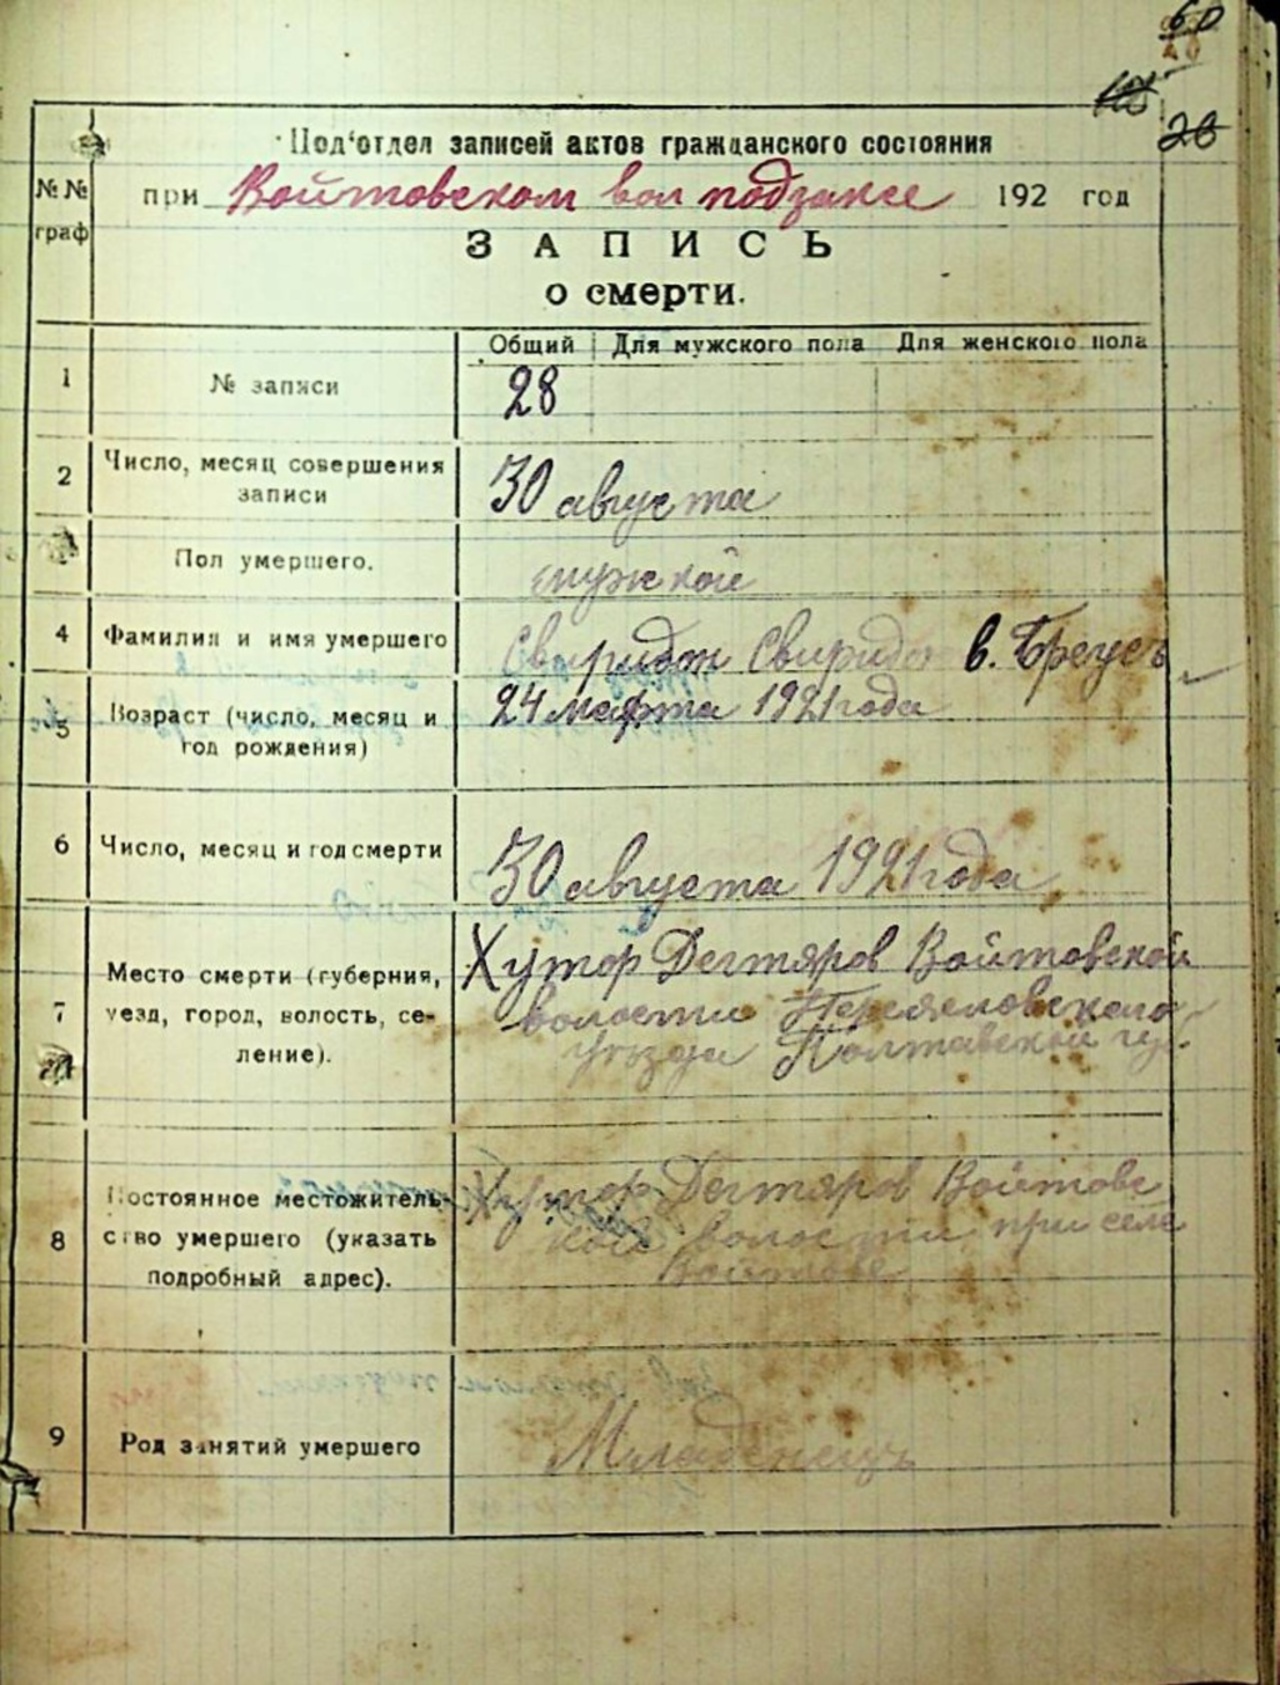 60
28
Под'отдел записей актов гражданского состояния
№№ граф
при Войтовском вол подзаксе 192 год
ЗАПИСЬ
о смерти.
Общий Для мужского пола Для женского пола
1 № записи 28
2 Число, месяц совершения
записи
30 августа
Пол умершего.
мужской
4 Фамилия и имя умершего Свиридон Свиридов в. Бреусъ
24 марта 1921 года
5 Возраст (число, месяц и
год рождения)
6 Число, месяц и год смерти
30 августа 1921 года
7 Место смерти (губерния,
уезд, город, волость, се-
ление).
Хутор Дегтяров Войтовской
волости Переяловского
уъзда Полтавской гу.
8 Постоянное местожитель-
ство умершего (указать
подробный адрес).
Хутор Дегтяров Войтовс
кой волости при селе
Войтове
9 Род занятий умершего
Младенецъ